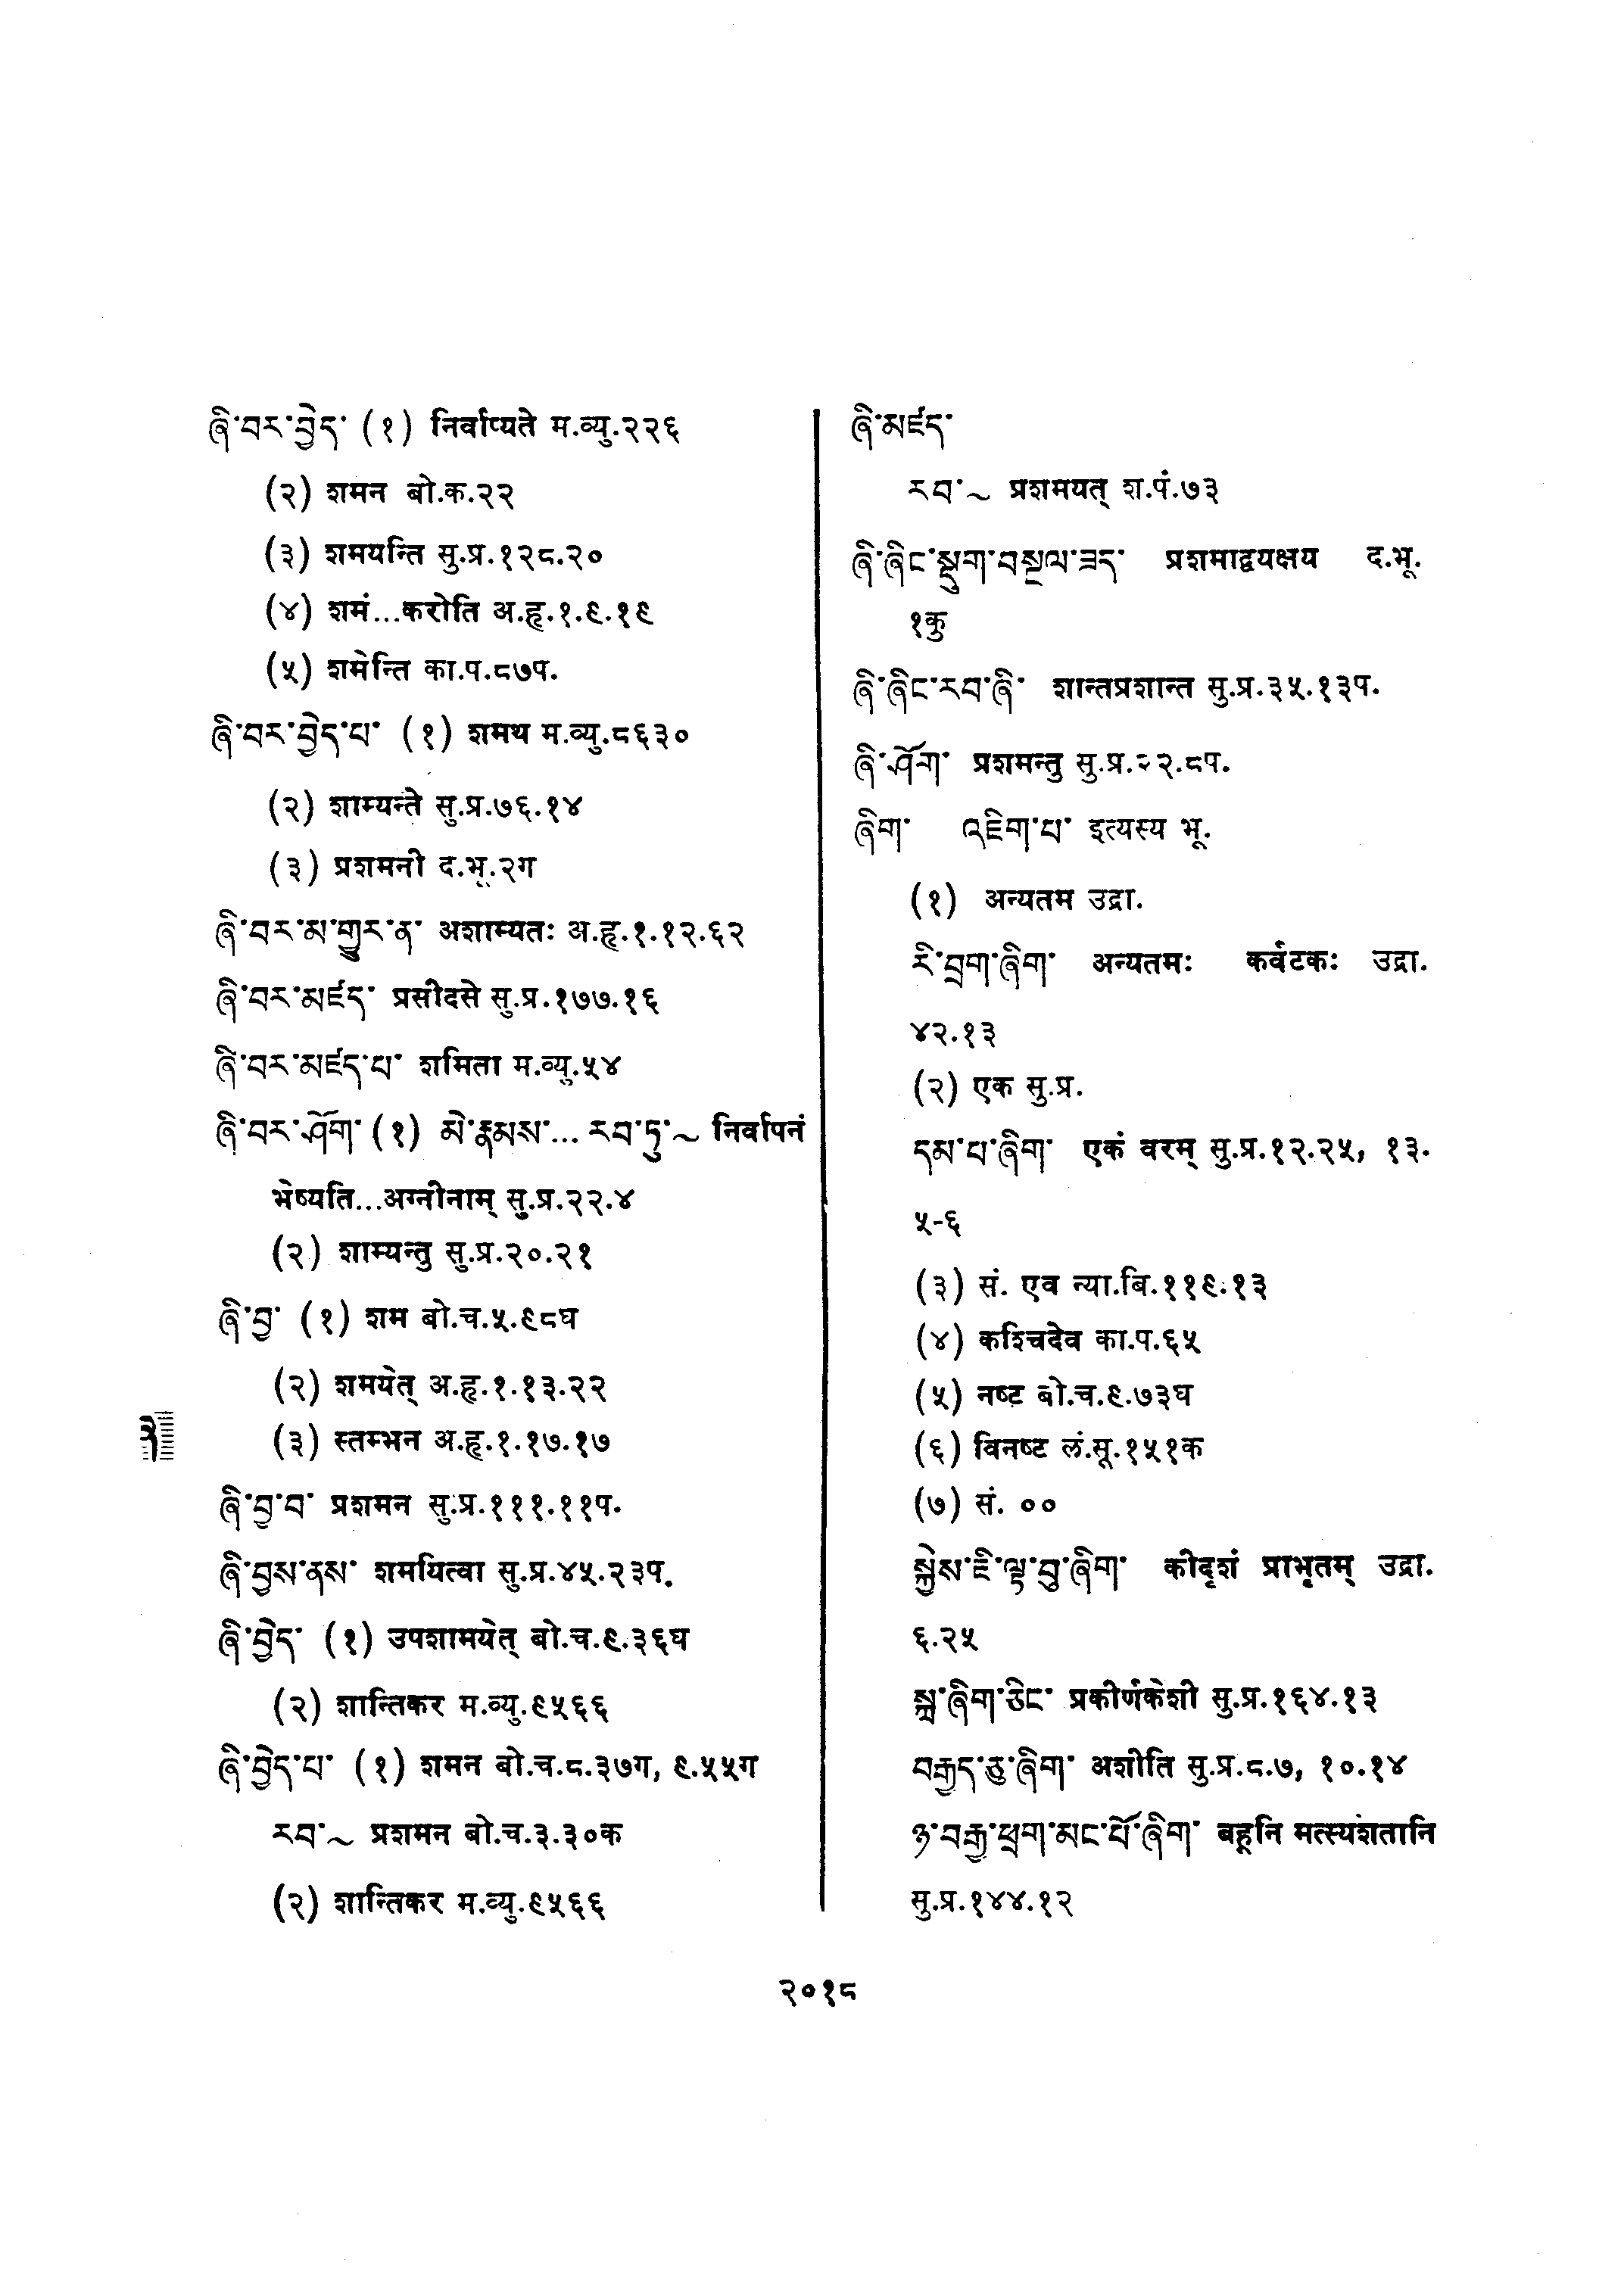 ཞི་བར་བྱེད་ (१) निर्वाप्यते म.व्यु.२२६
(२) शमन बो.क.२२
(३) शमयन्ति सु.प्र.१२८.२०
(४) शमं...करोति अ.हृ.१.९.१९
(५) शमेन्ति का.प.८७प.
ཞི་བར་བྱེད་པ་ (१) शमथ म.व्यु.८६३०
(२) शाम्यन्ते सु.प्र.७६.१४
(३) प्रशमनी द.भू.२ग
ཞི་བར་མ་གྱུར་ན་ अशाम्यतः अ.हृ.१.१२.६२
ཞི་བར་མཛད་ प्रसीदसे सु.प्र.१७७.१६
ཞི་བར་མཛད་པ་ शमिता म.व्यु.५४
ཞི་བར་ཤོག་ (१) མེ་རྣམས་... རབ་ཏུ་~ निर्वापनं
भेष्यति...अग्नीनाम् सु.प्र.२२.४
(२) शाम्यन्तु सु.प्र.२०.२१
ཞི་བྱ་ (१) शम बो.च.५.९८घ
(२) शमयेत् अ.हृ.१.१३.२२
(३) स्तम्भन अ.हृ.१.१७.१७
ཞི་བྱ་བ་ प्रशमन सु.प्र.१११.११प.
ཞི་བྱས་ནས་ शमयित्वा सु.प्र.४५.२३प.
ཞི་བྱེད་ (१) उपशामयेत् बो.च.९.३६घ
(२) शान्तिकर म.व्यु.९५६६
ཞི་བྱེད་པ་ (१) शमन बो.च.८.३७ग, ९.५५ग
རབ་~ प्रशमन बो.च.३.३०क
(२) शान्तिकर म.व्यु.९५६६
ཞི་མཛད་
རབ་~ प्रशमयत् श.पं.७३
ཞི་ཞིང་སྡུག་བསྔལ་ཟད་ प्रशमाद्वयक्षय द.भू.
१कु
ཞི་ཞིང་རབ་ཞི་ शान्तप्रशान्त सु.प्र.३५.१३प.
ཞི་ཤོག་ प्रशमन्तु सु.प्र.२२.८प.
ཞིག་ འཇིག་པ་ इत्यस्य भू.
(१) अन्यतम उद्रा.
རི་བྲག་ཞིག་ अन्यतमः कर्वटकः उद्रा.
४२.१३
(२) एक सु.प्र.
དམ་པ་ཞིག་ एकं वरम् सु.प्र.१२.२५, १३.
५-६
(३) सं. एव न्या.बि.११९.१३
(४) कश्चिदेव का.प.६५
(५) नष्ट बो.च.९.७३घ
(६) विनष्ट लं.सू.१५१क
(७) सं. ००
སྐྱེས་ཇི་ལྟ་བུ་ཞིག་ कीदृशं प्राभृतम् उद्रा.
६.२५
སྐྲ་ཞིག་ཅིང་ प्रकीर्णकेशी सु.प्र.१६४.१३
བརྒྱད་ཅུ་ཞིག་ अशीति सु.प्र.८.७, १०.१४
ཉ་བརྒྱ་ཕྲག་མང་པོ་ཞིག་ बहूनि मत्स्यशतानि
सु.प्र.१४४.१२
२०१८